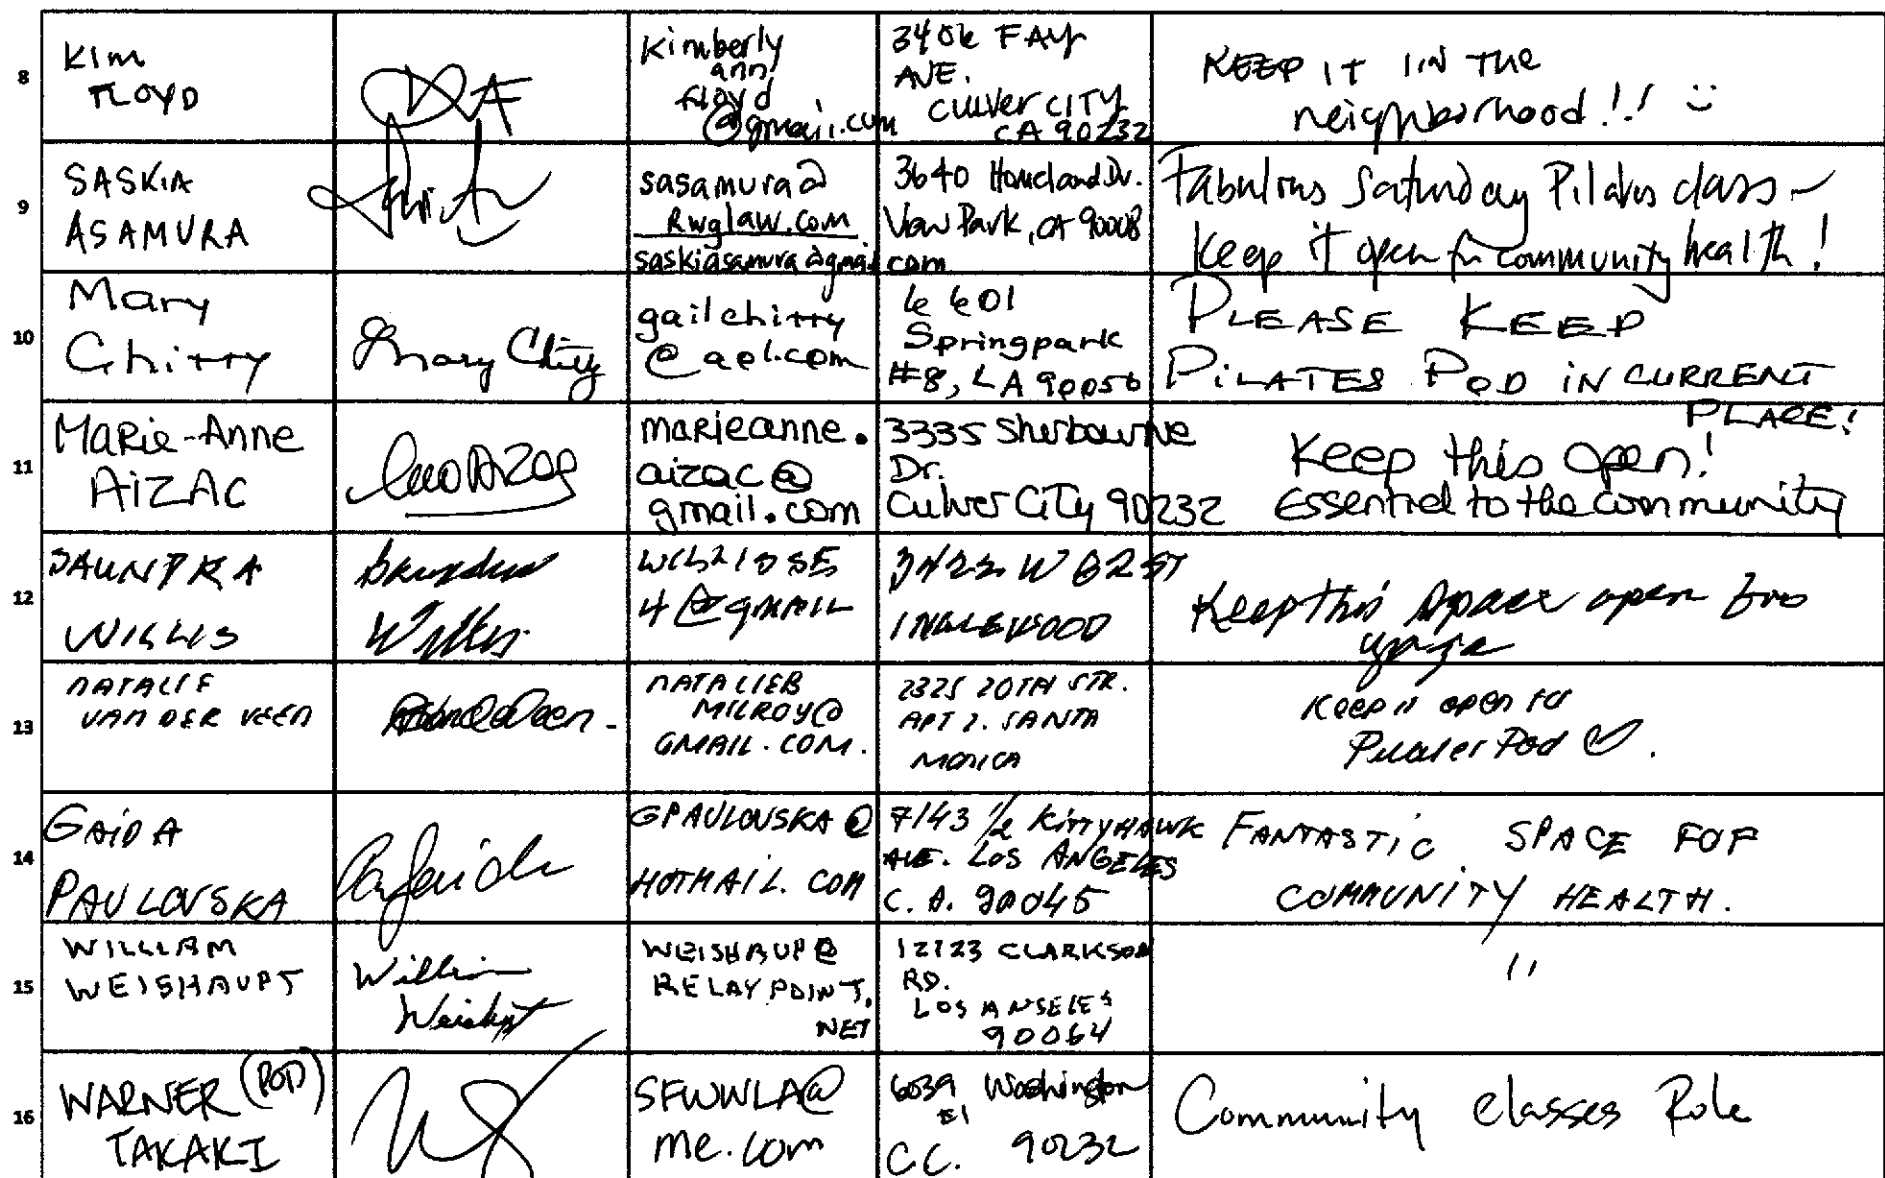 8
KIM
FLOYD
Kimberly
ann
floyd
@gmail.com
AVE.
CULVER CITY
CA 90232
KEEP IT IN THE
neighborhood!! :)
9
SASKIA
ASAMURA
sasamura@
Rwglaw.com
saskiasamura@gmail.com
3640 Homeland Dr.
View Park, CA 90008
Fabulous Saturday Pilates class -
keep it open for community health!
10
Mary
Chitty
Mary Chitty
gailchitty
@aol.com
6601
Springpark
#8, LA 90056
PLEASE KEEP
PILATES POD IN CURRENT
PLACE!
11
MARie-Anne
AIZAC
marieanne.
aizac@
gmail.com
3335 Sherbourne
Dr.
Culver City 90232
Keep this open!
Essential to the community
12
SAUNDRA
WILLIS
Saundra
Willis
4@gmail
INGLEWOOD
Keep this space open for
yoga
13
NATALIE
VAN DER VEEN
NATALIEB
MILROY@
GMAIL.COM.
2325 20TH STR.
APT 2. SANTA
MONICA
Keep it open for
Pilates Pod
14
GAIDA
PAVLOVSKA
GPAVLOVSKA@
HOTMAIL.COM
7143 1/2 KITTYHAWK
AVE. LOS ANGELES
C.A. 90045
FANTASTIC SPACE FOR
COMMUNITY HEALTH.
15
WILLIAM
WEISHAUPT
William
Weishaupt
WEISHAUP@
RELAYPOINT.
NET
12123 CLARKSON
RD.
LOS ANGELES
90064
"
16
WARNER (POD)
TAKAKI
SFWWLA@
me.com
6039 Washington
#1
C.C. 90232
Community classes Role